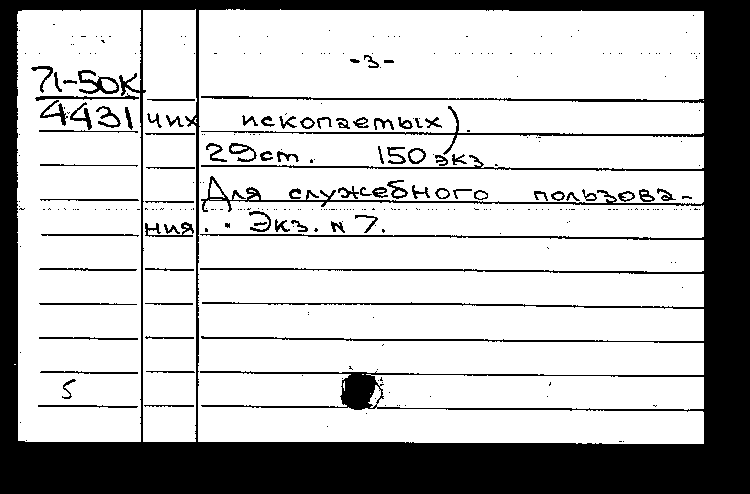 -3-
71-50К
4431 чих ископаемых).
29 ст. 150 экз.
Для служебного пользова-
ния. Экз. N 7.
5